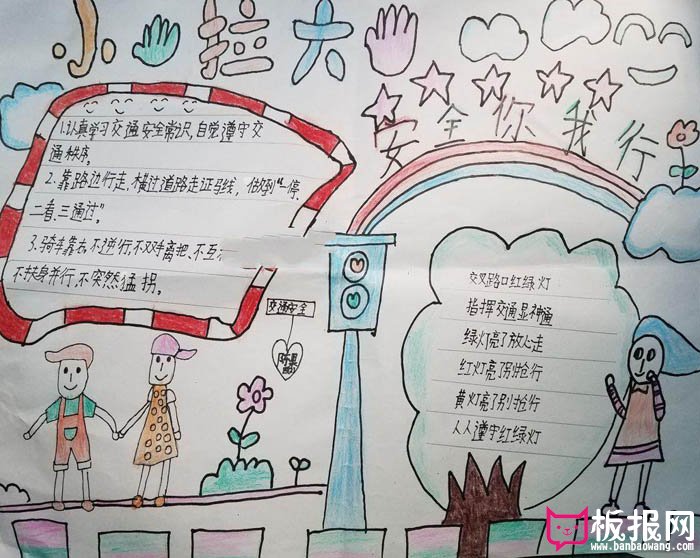 小 拉大
安全你我行
1.认真学习交通安全常识,自觉遵守交
通秩序。
2.靠路边行走,横过道路走斑马线,做到“一停、
二看、三通过”。
3.骑车靠右,不逆行,不双手离把、不互
不转身并行,不突然猛拐。
交通安全
交叉路口红绿灯
指挥交通显神通
绿灯亮了放心走
红灯亮了别抢行
黄灯亮了别抢行
人人遵守红绿灯
板报网
www.banbaowang.com